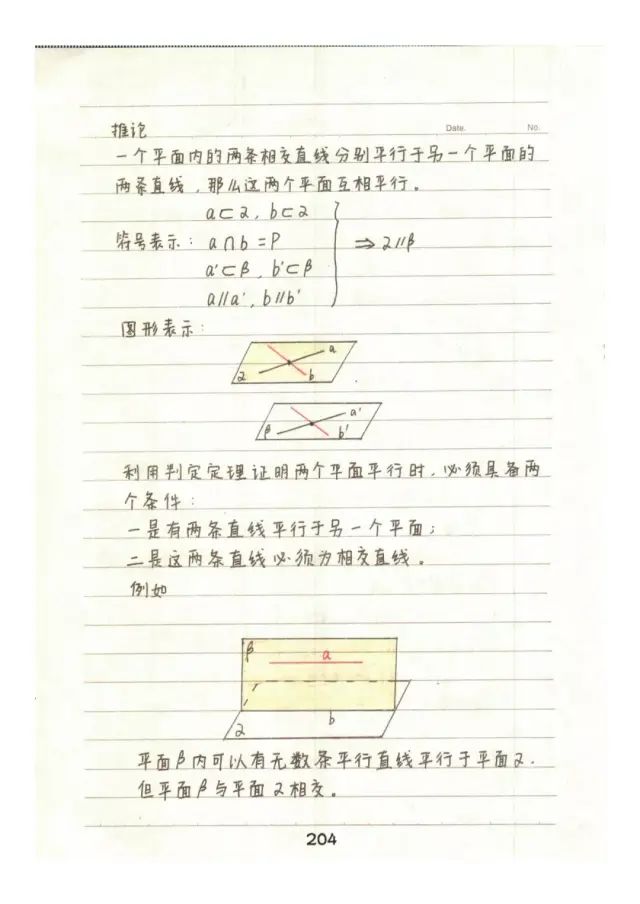 Date. No.
推论
一个平面内的两条相交直线分别平行于另一个平面的
两条直线，那么这两个平面互相平行。
a⊂α, b⊂α
符号表示: a∩b=P ⇒ α//β
a'⊂β, b'⊂β
a//a', b//b'
图形表示:
a
α b
a'
β b'
利用判定定理证明两个平面平行时，必须具备两
个条件:
一是有两条直线平行于另一个平面;
二是这两条直线必须为相交直线。
例如
β
a
b
α
平面β内可以有无数条平行直线平行于平面α.
但平面β与平面α相交。
204